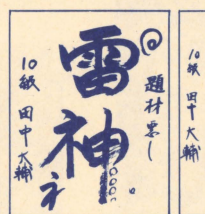 題材悪し
雷神
ネ
10紙 田中大輔
10紙 田中大輔